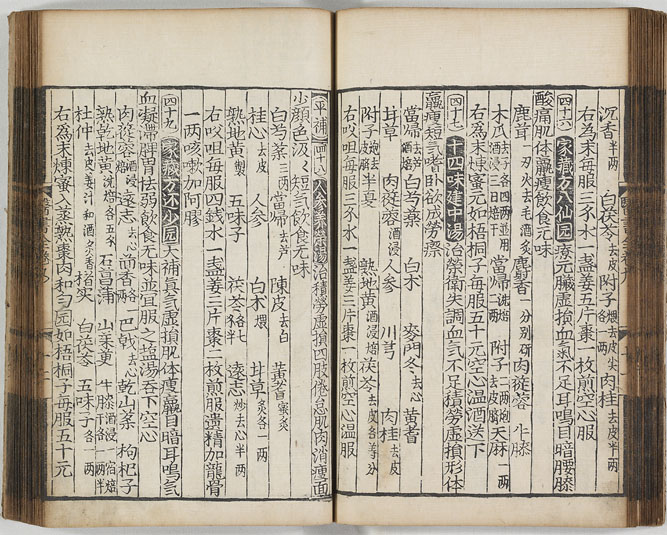 沉香半两 白茯苓去皮 附子煨去皮尖各一两 肉桂去皮半两
右為末每服三錢水一盞姜五片棗一枚煎空心服
四十六 家藏方八仙园 療元臟虛損血氣不足耳鳴目暗腰膝
酸痛肌体羸瘦飲食无味
鹿茸一两火去毛酒炙 麝香一分别研 肉蓯蓉 牛膝
木瓜去子各四两並用酒浸三日焙干 當歸洗焙 附子一两炮去皮臍 天麻一两
右為末煉蜜元如梧桐子每服五十元空心温酒送下
四十七 十四味建中湯 治榮衛失調血氣不足積勞虛損形体
羸瘦短氣嗜卧欲成勞瘵
當歸去芦酒焙 白芍藥 白术 麥門冬去心 黄蓍
甘草 肉蓯蓉酒浸 人参 川芎 肉桂去皮
附子炮去皮 半夏 熟地黄酒浸焙 茯苓去皮各等分
右㕮咀每服三錢水一盞姜三片棗一枚煎空心温服
平補 四十八 人参養榮湯 治積勞虛損四肢倦怠肌肉消瘦面
少顔色汲汲短氣飲食无味
白芍藥三两 當歸去芦 陳皮去白 黄蓍蜜炙
桂心去皮 人参 白术煨 甘草炙各一两
熟地黄製 五味子 茯苓各七半 遠志炒去心半两
右㕮咀每服四錢水一盞姜三片棗二枚煎服遗精加龍骨
一两咳嗽加阿膠
四十九 家藏方还少园 大補真氣虛損肌体瘦羸目暗耳鳴氣
血凝滯脾胃怯弱飲食无味並宜服之盐湯吞下空心
肉蓯蓉酒浸焙 遠志去心 茴香各一两 巴戟去心 乾山藥 枸杞子
熟乾地黄洗焙各五分 石菖蒲 山茱萸 牛膝酒浸一宿焙各一两半
杜仲去皮姜汁和酒炙香 楮实 白茯苓 五味子各一两
右為末煉蜜入蒸熟棗肉和勻园如梧桐子每服五十元